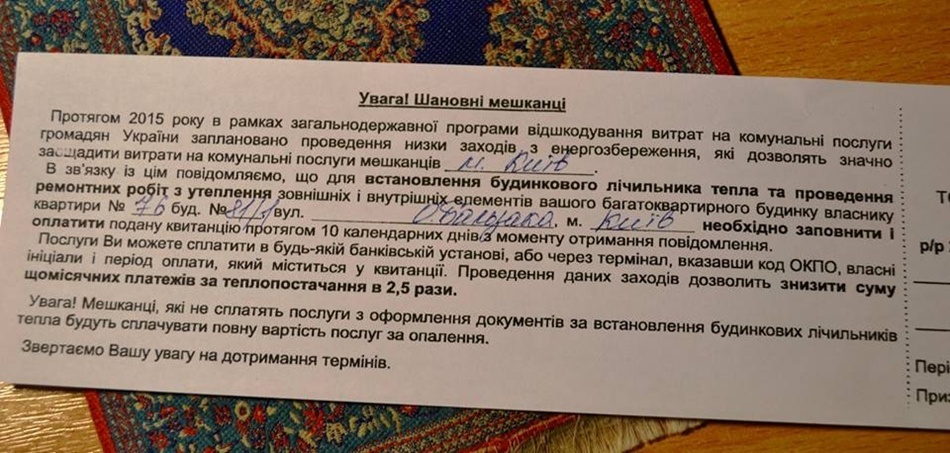 Увага! Шановні мешканці
Протягом 2015 року в рамках загальнодержавної програми відшкодування витрат на комунальні послуги
громадян України заплановано проведення низки заходів з енергозбереження, які дозволять значно
заощадити витрати на комунальні послуги мешканців м. Київ.
В зв'язку із цім повідомляємо, що для встановлення будинкового лічильника тепла та проведення
ремонтних робіт з утеплення зовнішніх і внутрішніх елементів вашого багатоквартирного будинку власнику
квартири № 76 буд. № 81/1 вул. О.Бальзака м. Київ необхідно заповнити і
оплатити подану квитанцію протягом 10 календарних днів з моменту отримання повідомлення.
Послуги Ви можете сплатити в будь-якій банківській установі, або через термінал, вказавши код ОКПО, власні
ініціали і період оплати, який міститься у квитанції. Проведення даних заходів дозволить знизити суму
щомісячних платежів за теплопостачання в 2,5 рази.
Увага! Мешканці, які не сплатять послуги з оформлення документів за встановлення будинкових лічильників
тепла будуть сплачувати повну вартість послуг за опалення.
Звертаємо Вашу увагу на дотримання термінів.
р/р